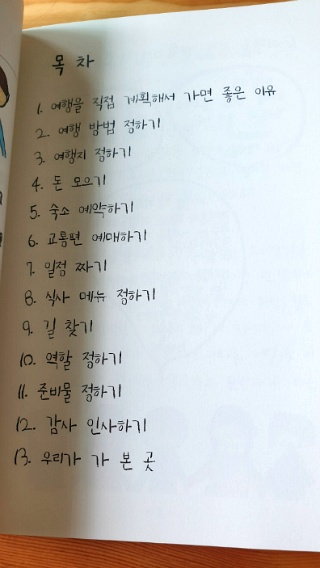 목차
1. 여행을 직접 계획해서 가면 좋은 이유
2. 여행 방법 정하기
3. 여행지 정하기
4. 돈 모으기
5. 숙소 예약하기
6. 교통편 예매하기
7. 일정 짜기
8. 식사 메뉴 정하기
9. 길 찾기
10. 역할 정하기
11. 준비물 정하기
12. 감사 인사하기
13. 우리가 가 본 곳